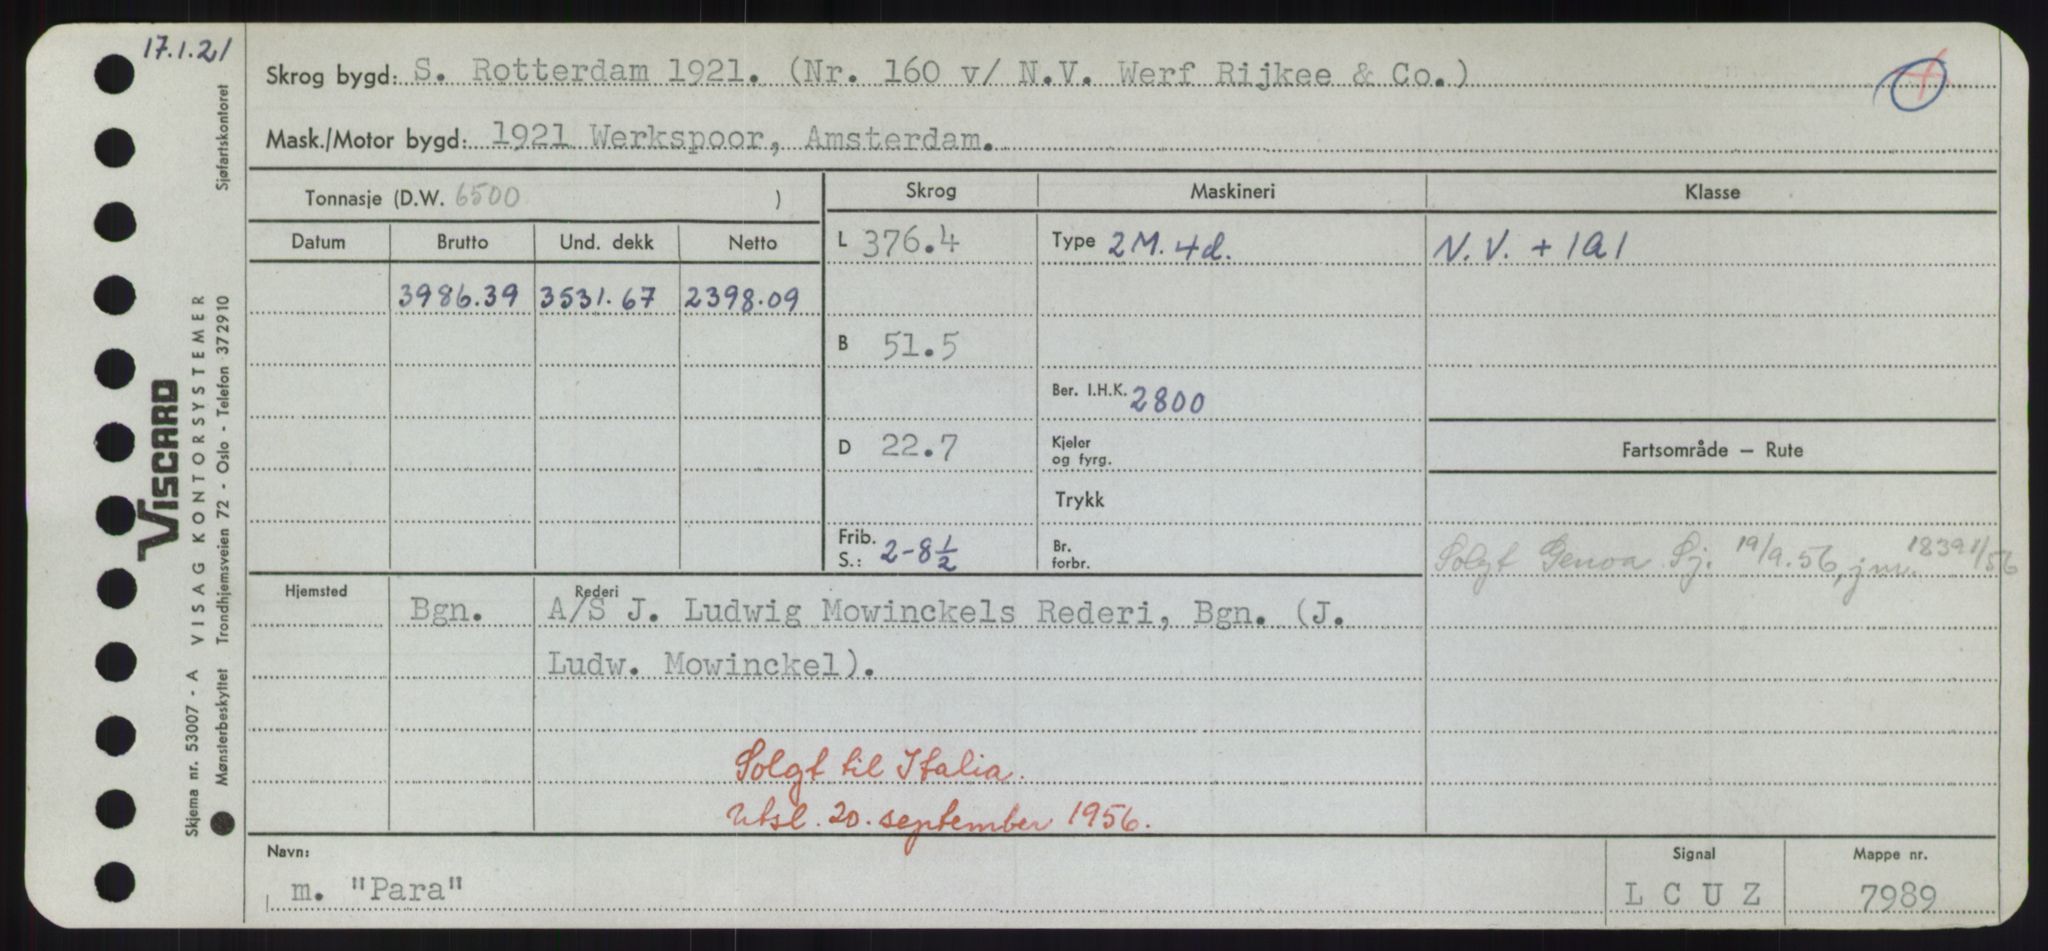 17.1.21
Skrog bygd: S. Rotterdam 1921. (Nr. 160 v/ N.V. Werf Rijkee & Co.)
Mask./Motor bygd: 1921 Werkspoor, Amsterdam.
Tonnasje (D.W. 6500 )
Skrog Maskineri Klasse
Datum Brutto Und. dekk Netto
L 376.4 Type 2 M. 4d. N.V. + 1A1
3986.39 3531.67 2398.09
B 51.5
Ber. I.H.K. 2800
D 22.7 Kjeler og fyrg.
Fartsområde — Rute
Trykk
Frib. S.: 2-8½ Br. forbr.
Solgt Genoa Sj. 19/9.56, jnr. 18391/56
Hjemsted Rederi
Bgn. A/S J. Ludwig Mowinckels Rederi, Bgn. (J.
Ludw. Mowinckel).
Solgt til Italia.
Utsl. 20. september 1956.
Navn: Signal Mappe nr.
m. "Para" L C U Z 7989
VISCARD
Skjema nr. 53007 - A VISAG KONTORSYSTEMER
Mønsterbeskyttet Trondhjemsveien 72 - Oslo - Telefon 372910 Sjøfartskontoret